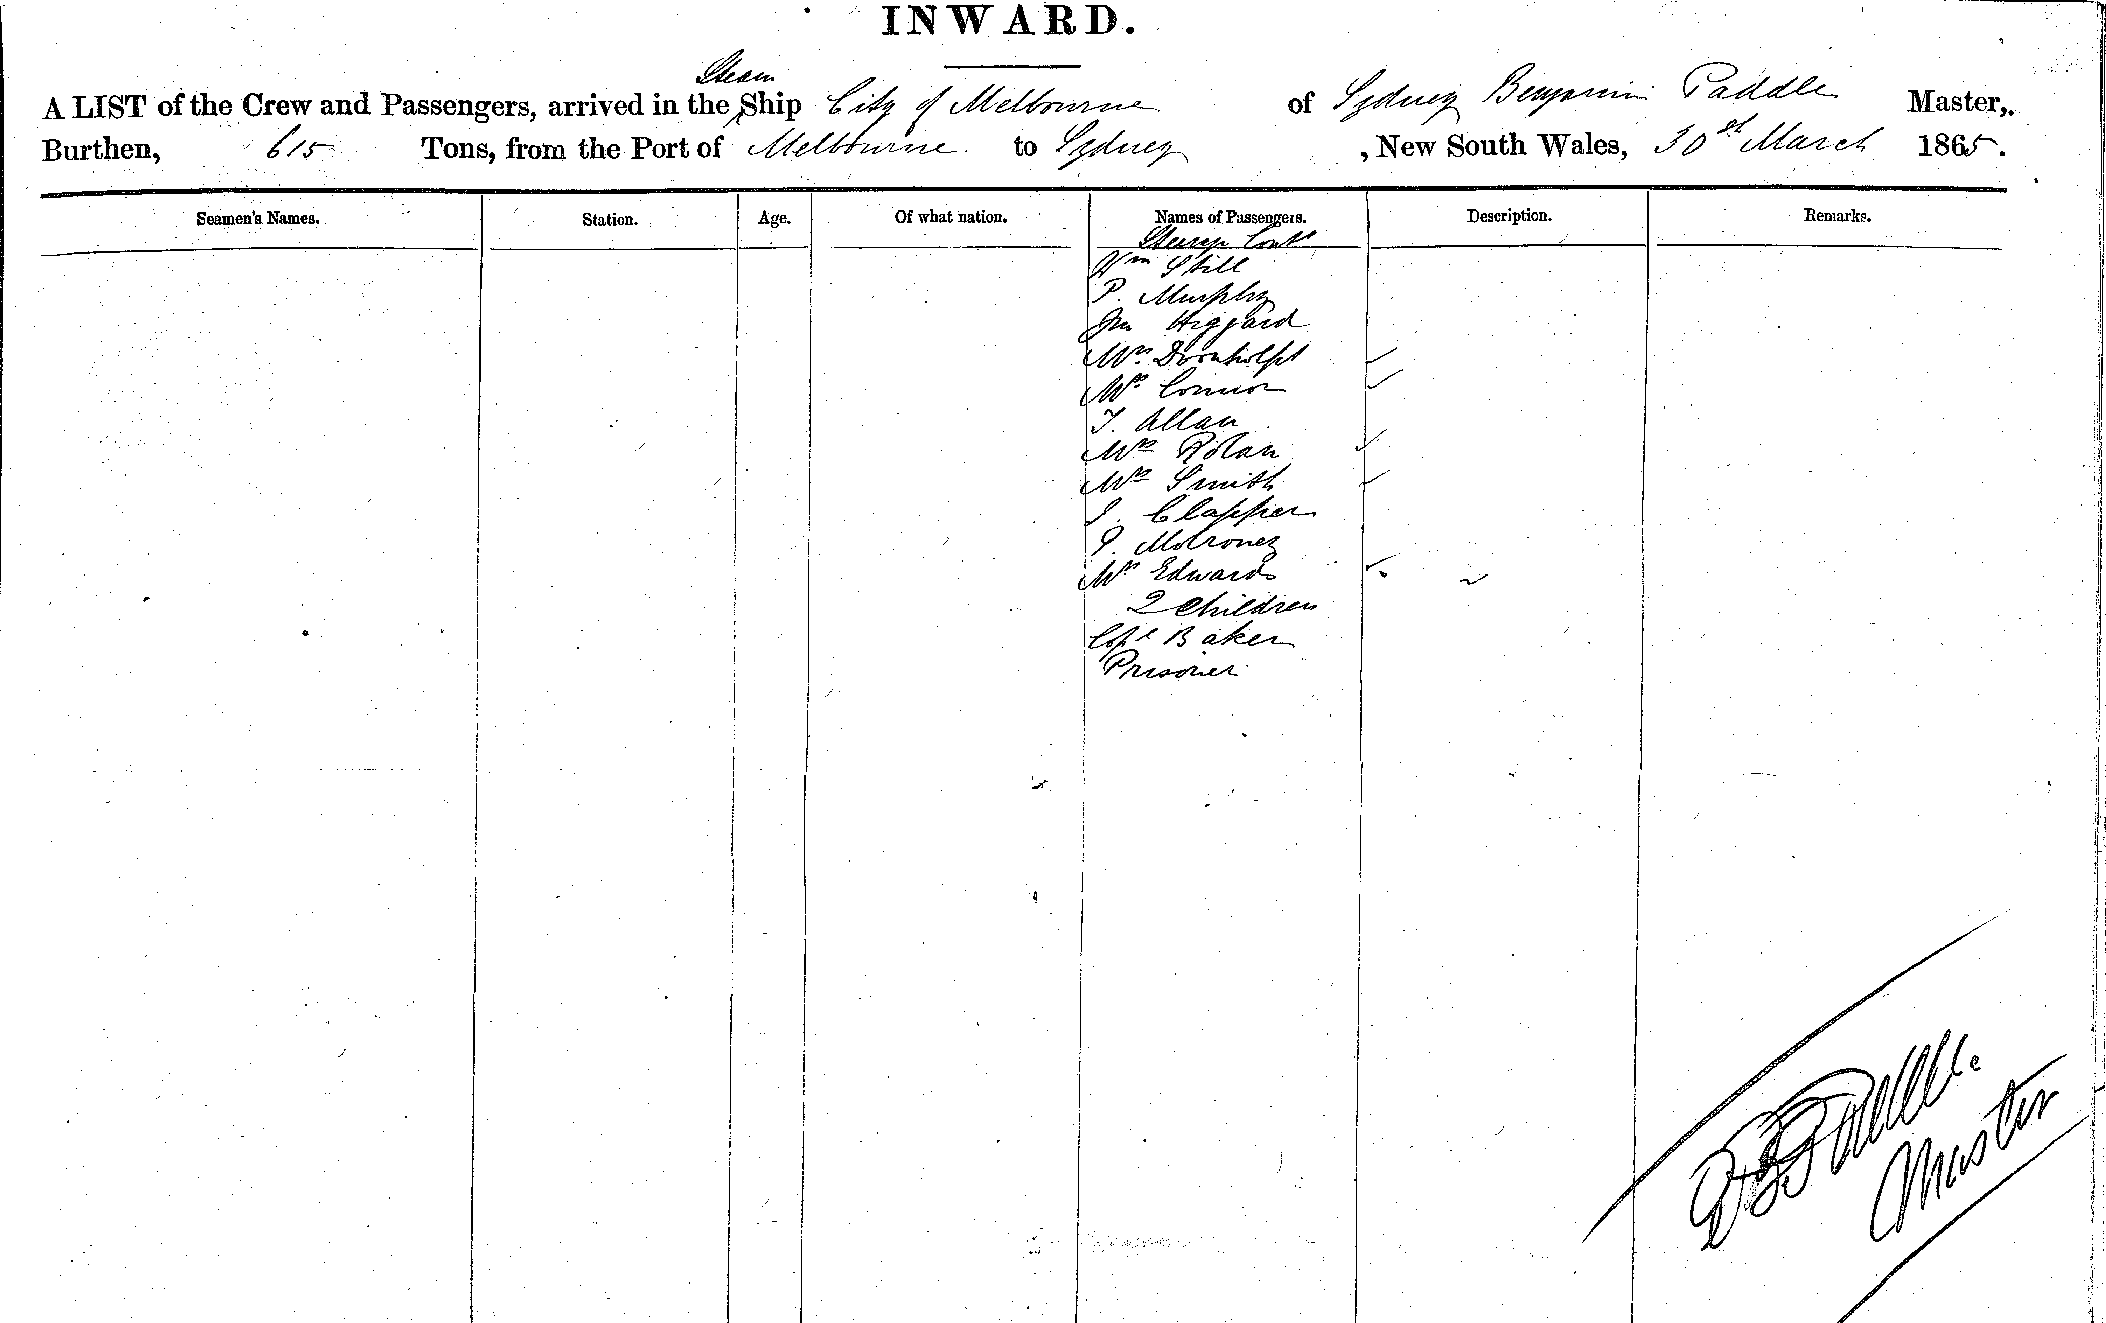 INWARD.
Steam
A LIST of the Crew and Passengers, arrived in the Ship City of Melbourne of Sydney Benjamin Paddle Master,
Burthen, 615 Tons, from the Port of Melbourne to Sydney, New South Wales, 30st March 1865.
Seamen's Names. Station. Age. Of what nation. Names of Passengers. Description. Remarks.
Steerage Contd
Wm Still
P. Murphy
Jno Higgard
Mrs
Mrs Connor
T. Allan
Mrs
Mrs Smith
J. Clapper
P. Molroney
Mrs Edwards
2 Children
Copl Baker
Prisoner
Paddle
Master